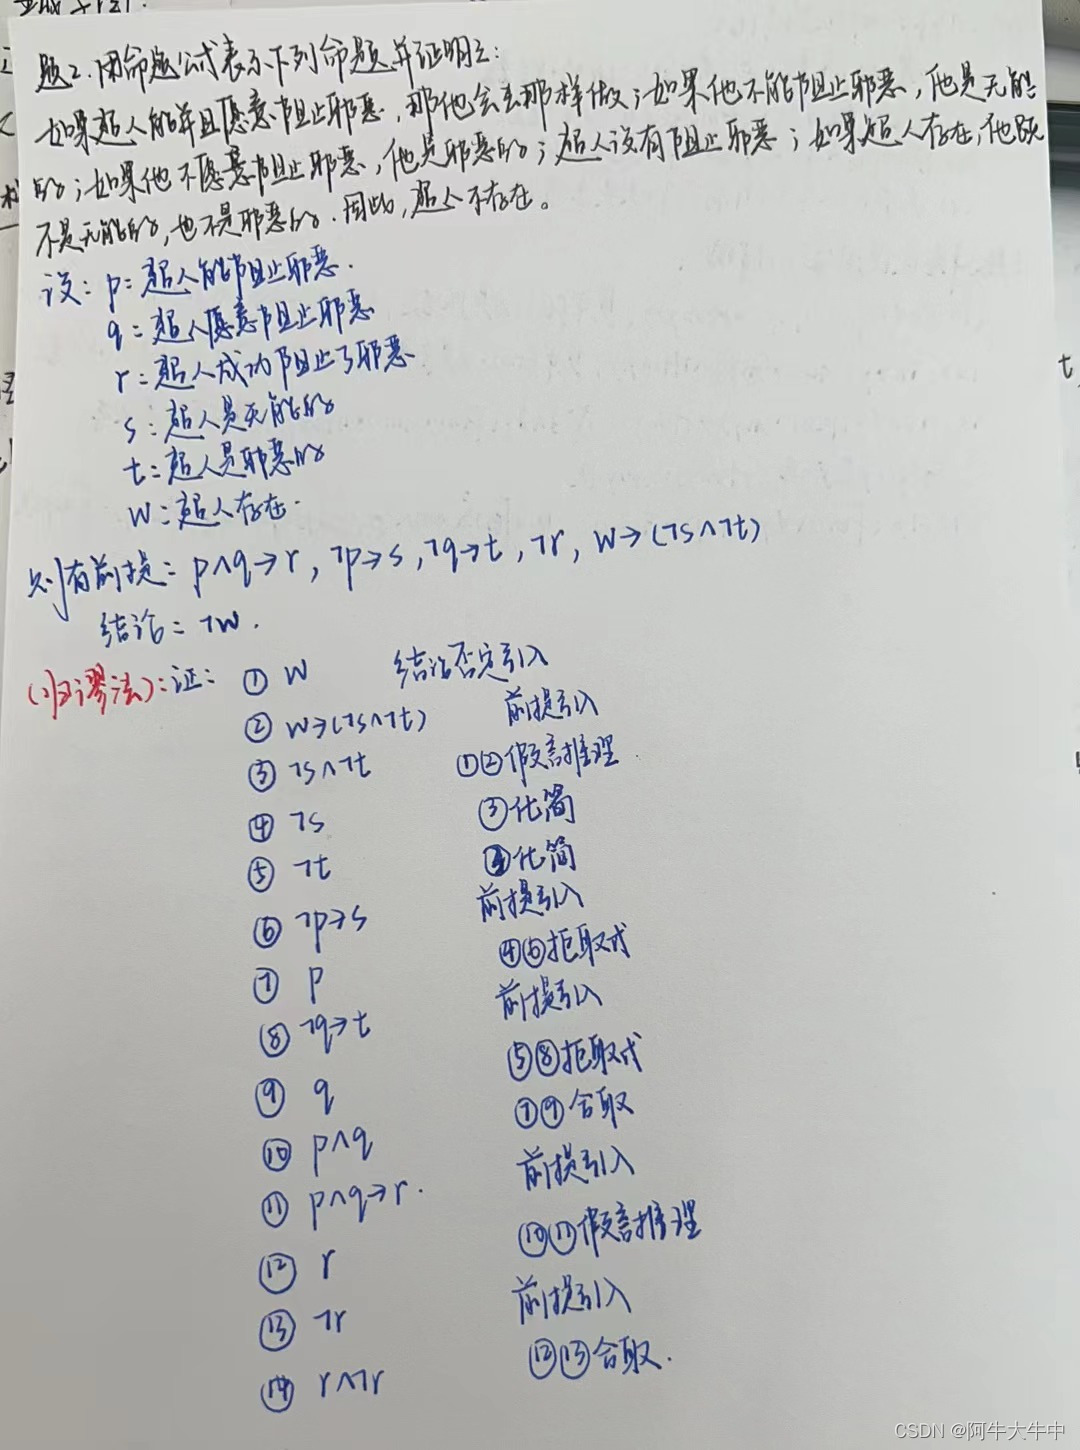 题2.用命题公式表示下列命题并证明之:
如果超人能并且愿意阻止邪恶,那他会去那样做;如果他不能阻止邪恶,他是无能
的;如果他不愿意阻止邪恶,他是邪恶的;超人没有阻止邪恶;如果超人存在,他既
不是无能的,也不是邪恶的.因此,超人不存在。
设: p=超人能阻止邪恶.
q=超人愿意阻止邪恶
r=超人成功阻止了邪恶
s:超人是无能的
t=超人是邪恶的
W:超人存在.
则有前提: p∧q→r, ¬p→s, ¬q→t, ¬r, W→(¬s∧¬t)
结论=¬w.
(归谬法):证: ① W 结论否定引入
② W→(¬s∧¬t) 前提引入
③ ¬s∧¬t ①②假言推理
④ ¬s ③化简
⑤ ¬t ③化简
⑥ ¬p→s 前提引入
⑦ p ④⑥拒取式
⑧ ¬q→t 前提引入
⑨ q ⑤⑧拒取式
⑩ p∧q ⑦⑨合取
⑪ p∧q→r. 前提引入
⑫ r ⑩⑪假言推理
⑬ ¬r 前提引入
⑭ r∧¬r ⑫⑬合取.
t
CSDN @阿牛大牛中